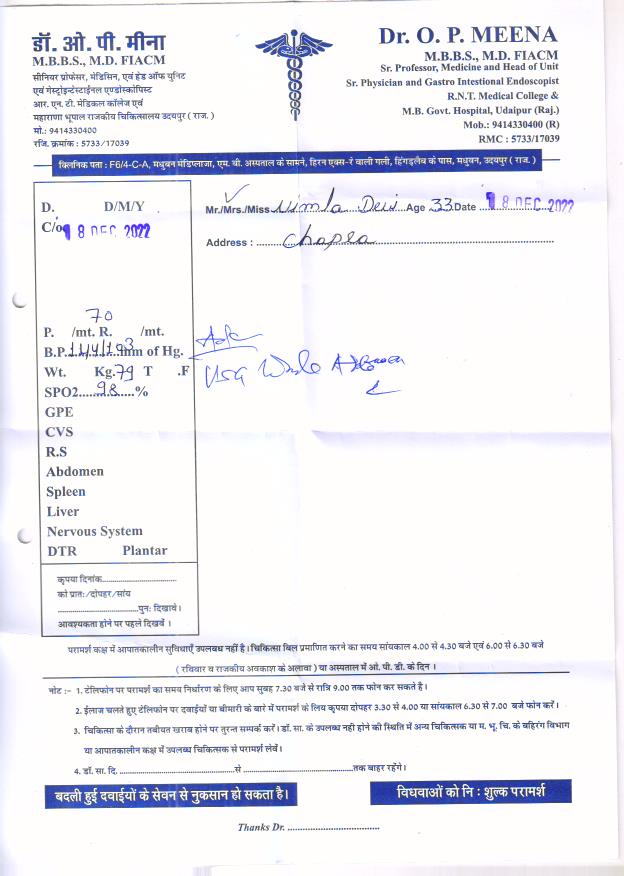 डॉ. ओ. पी. मीना
M.B.B.S., M.D. FIACM
सीनियर प्रोफेसर, मेडिसिन, एवं हेड ऑफ यूनिट
एवं गेस्ट्रोइन्टेस्टाईनल एण्डोस्कोपिस्ट
आर. एन. टी. मेडिकल कॉलेज एवं
महाराणा भूपाल राजकीय चिकित्सालय उदयपुर ( राज. )
मो.: 9414330400
रजि. क्रमांक : 5733/17039
Dr. O. P. MEENA
M.B.B.S., M.D. FIACM
Sr. Professor, Medicine and Head of Unit
Sr. Physician and Gastro Intestional Endoscopist
R.N.T. Medical College &
M.B. Govt. Hospital, Udaipur (Raj.)
Mob.: 9414330400 (R)
RMC : 5733/17039
क्लिनिक पता : F6/4-C-A, मधुवन मेडिप्लाजा, एम. बी. अस्पताल के सामने, हिरन एक्स-रे वाली गली, हिंगड़लैब के पास, मधुवन, उदयपुर ( राज. )
D. D/M/Y
C/o 18 DEC 2022
Mr./Mrs./Miss Vimla Devi Age 33 Date 18 DEC 2022
Address : Chopra
70
P. /mt. R. /mt.
B.P. mm of Hg.
Wt. Kg. 79 T .F
SPO2 98 %
GPE
CVS
R.S
Abdomen
Spleen
Liver
Nervous System
DTR Plantar
USG Whole Abdomen
कृपया दिनांक
को प्रातः/दोपहर/सांय
पुनः दिखावे।
आवश्यकता होने पर पहले दिखावें ।
परामर्श कक्ष में आपातकालीन सुविधाएँ उपलबध नहीं है। चिकित्सा बिल प्रमाणित करने का समय सांयकाल 4.00 से 4.30 बजे एवं 6.00 से 6.30 बजे
( रविवार व राजकीय अवकाश के अलावा ) या अस्पताल में ओ. पी. डी. के दिन ।
नोट :- 1. टेलिफोन पर परामर्श का समय निर्धारण के लिए आप सुबह 7.30 बजे से रात्रि 9.00 तक फोन कर सकते है।
2. ईलाज चलते हुए टेलिफोन पर दवाईयों या बीमारी के बारे में परामर्श के लिय कृपया दोपहर 3.30 से 4.00 या सांयकाल 6.30 से 7.00 बजे फोन करें।
3. चिकित्सा के दौरान तबीयत खराब होने पर तुरन्त सम्पर्क करें। डॉ. सा. के उपलब्ध नही होने की स्थिति में अन्य चिकित्सक या म. भू. चि. के बहिरंग विभाग
या आपातकालीन कक्ष में उपलब्ध चिकित्सक से परामर्श लेवें।
4. डॉ. सा. दि. से तक बाहर रहेंगे।
बदली हुई दवाईयों के सेवन से नुकसान हो सकता है।
विधवाओं को नि : शुल्क परामर्श
Thanks Dr.